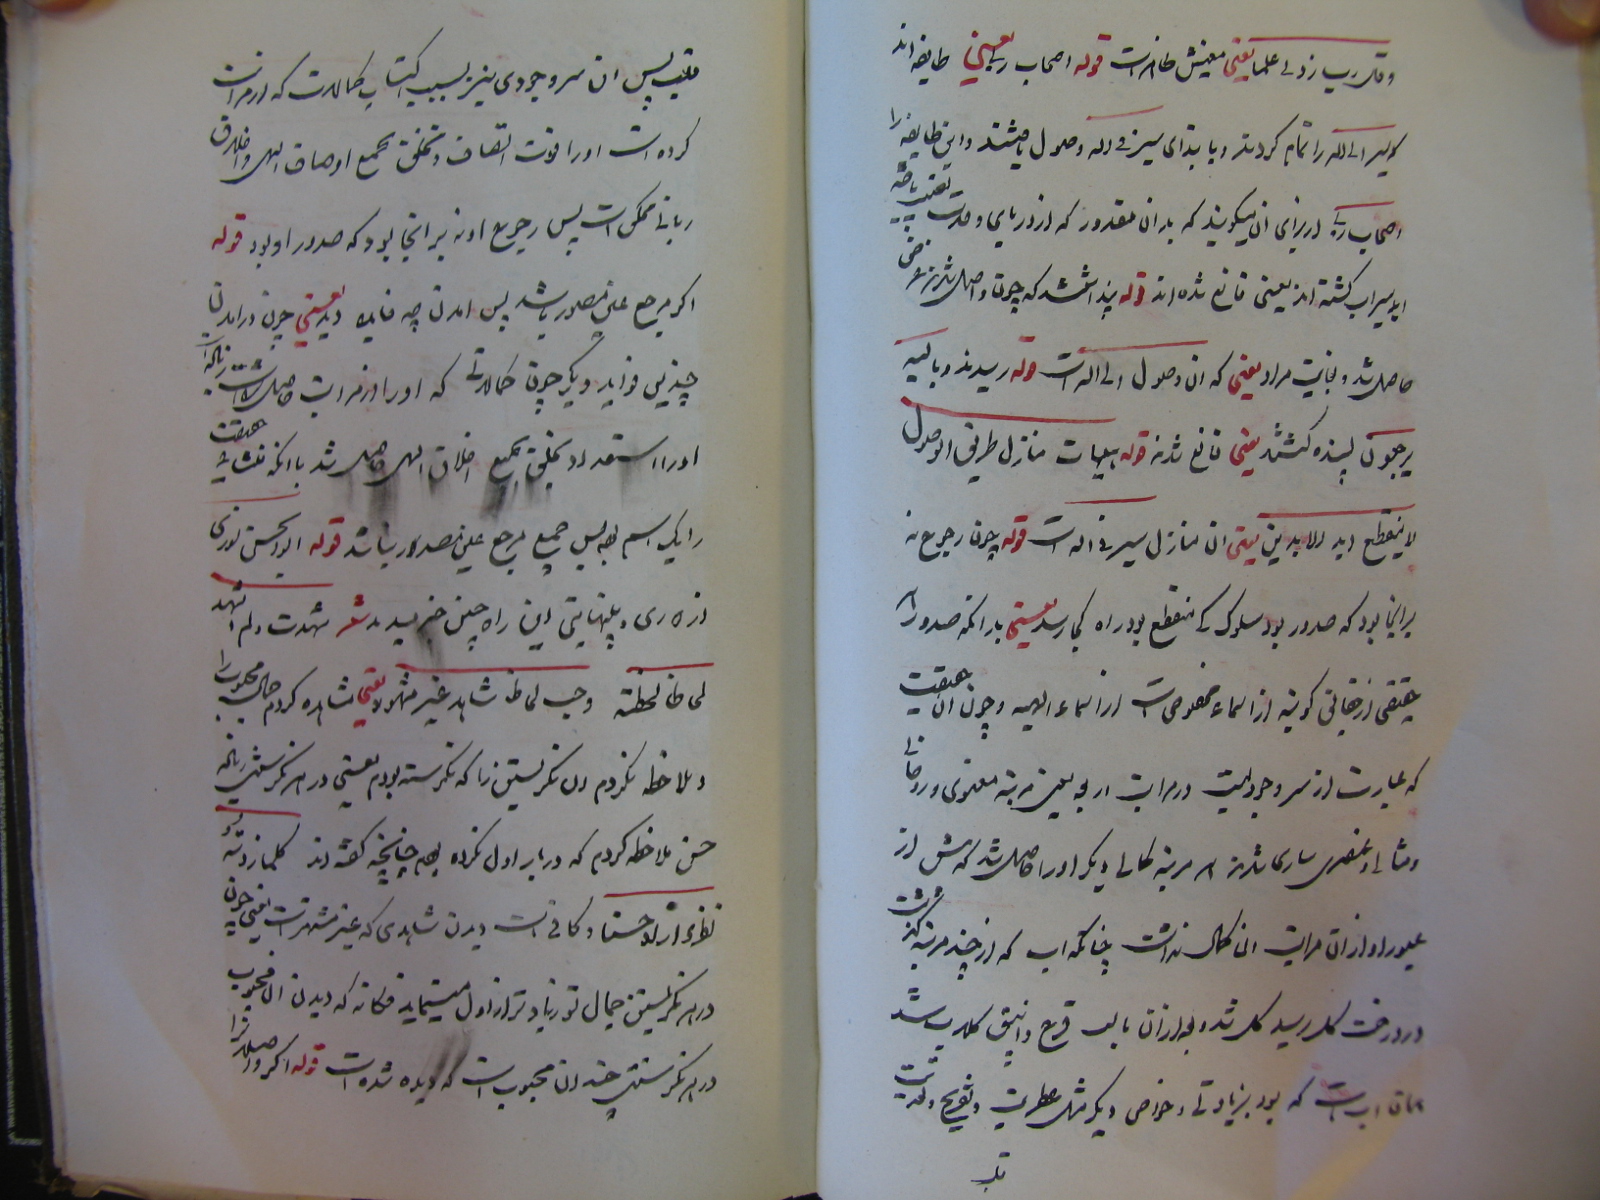 و قل رب زدنی علما یعنی معنیش ظاهر است قوله اصحاب ری یعنی طایفه اند
که سیر الی الله را تمام کردند و با بتدای سیر فی الله وصول یافتند و این طایفه را
اصحاب ری از برای ان میکویند که بدان مقدور که از دریای وحدت نصیب یافته
اند سیراب کشته اند یعنی قانع شده اند قوله پنداشتند که چون واصل شدند غرض
حاصل شد و نهایت مراد یعنی که ان وصول الی الله است قوله رسیدند و بالیه
یرجعون بسنده کشتند یعنی قانع شدند قوله هیهات منازل طریق الوصول
لا ینقطع ابد الابدین یعنی ان منازل سیر فی الله است قوله چون رجوع نه
بر انجا بود که صدور بود سلوک کی منقطع بود راه کجا رسد یعنی بدانکه صدور هر
حقیقتی از حقایق کونیه از اسماء مخصوص است از اسماء الهیه و چون ان حقیقت
که عبارت از سر وجودیست در مراتب اربعه یعنی مرتبه معنوی و روحانی
و مثالی و عنصری ساری شد در هر مرتبه کمالی دیکر او را حاصل شد که پیش از
عبور او از ان مراتب ان کمال نداشت چنانکه اب که از چند مرتبه کذشت
در درخت کل رسید کل شد و بعد از ان باب قرع و انبیق کلاب شد
همان اب است که بود بزیادتی و خواص دیکر مثل عطریت و تفریح و تقویت
قلب
قلب پس ان سر وجودی نیز بسبب اکتساب کمالات که از مراتب
کرده است او را قوت اتصاف و تخلق بجمیع اوصاف الهی و اخلاق
ربانی ممکن است پس رجوع او نه بر انجا بود که صدور او بود قوله
اکر مرجع عین مصدر باشد پس امدن چه فایده دید یعنی چون در امدن
چندین فواید دیکر چون کمالاتی که او را در مراتب حاصل شده است زیرا که
او را استعداد تخلق بجمیع اخلاق الهی حاصل شد با انکه حقیقت
را یک اسم بود پس جمیع مرجع عین مصدر نباشد قوله ابو الحسن نوری
از دوری و بینهایتی این راه چنین خبر میدهد شعر شهدت ولم اشهد
لحاظا لحظته وحسب لحاظ شاهد غیر مشهد یعنی مشاهده کردم جمال محبوب را
و ملاحظه نکردم ان نکریستن را که نکرسته بودم یعنی در هر نکرستنی زیاده
حسن ملاحظه کردم که در بار اول نکرده بودم چنانچه کفته اند کلما زدته
نظرا زاد حسنا و کافیست دیدن شاهدی که غیر مشهد است یعنی چون
در هر نکریستن جمال تو زیاد تر از اول مینماید فکانه که دیدن ان محبوب
در هر نکرستنی حسن ان محبوب است که دیده شده است قوله اکر واصلان را